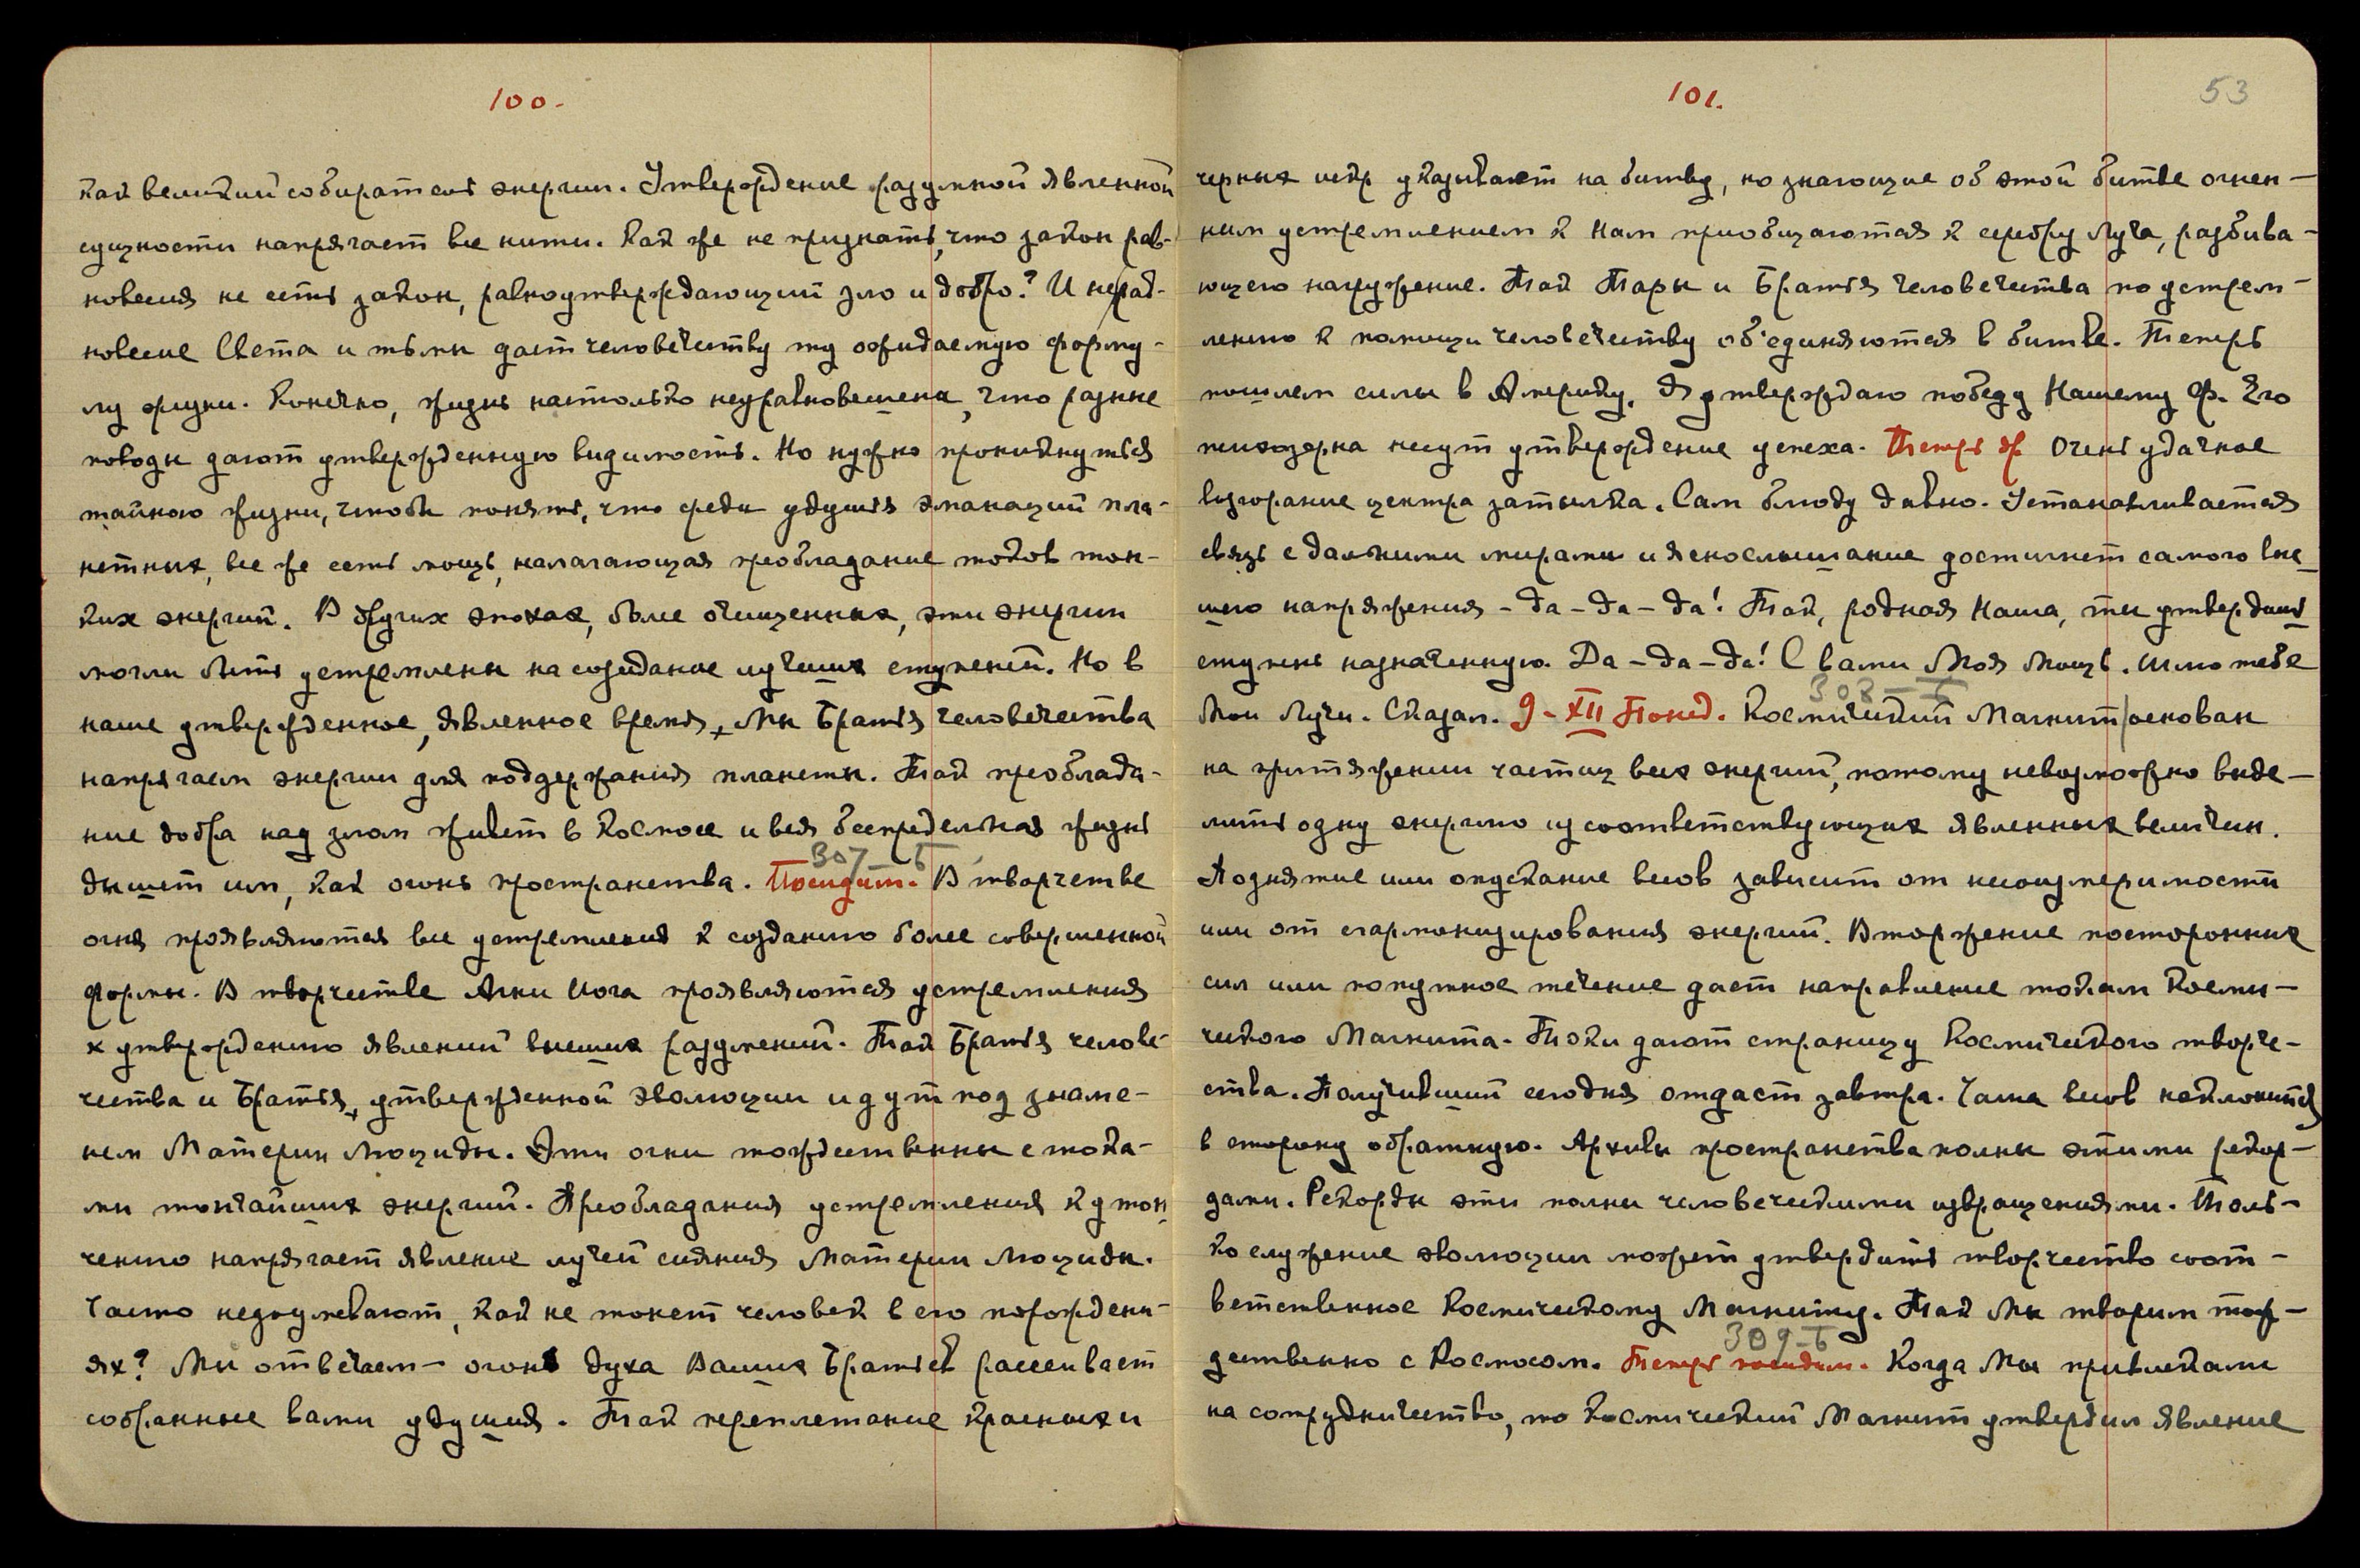 100.
как великий собиратель энергии. Утверждение разумной явленной
сущности напрягает все нити. Как же не признать, что закон рав-
новесия не есть закон, равноутверждающий зло и добро? И нерав-
новесие Света и тьмы дает человечеству ту ожидаемую форму-
лу жизни. Конечно, жизнь настолько неуравновешена, что разные
поводы дают утвержденную видимость. Но нужно проникнуться
тайною жизни, чтобы понять, что среди удушья эманаций пла-
нетных, все же есть мощь, налагающая преобладание токов тон-
ких энергий. В других эпохах, более очищенных, эти энергии
могли быть устремлены на созидание лучших ступеней. Но в
наше утвержденное, явленное время, Мы Братья Человечества
напрягаем энергии для поддержания планеты. Так преоблада-
ние добра над злом живет в Космосе и вся беспредельная жизнь
307-Б
дышет им, как огонь пространства. Посидим. В творчестве
огня проявляются все устремления к созданию более совершенной
формы. В творчестве Агни Йога проявляются устремления
к утверждению явлений высших разумений. Так Братья челове-
чества и Братья, утвержденной эволюции идут под знаме-
нем Материи Люциды. Эти огни тождественны с тока-
ми тончайших энергий. Преобладания устремления к утон
чению напрягает явление лучей сияния Материи Люциды.
Часто недоумевают, как не тонет человек в его порождени-
ях? Мы отвечаем — огонь духа Ваших Братьев рассеивает
собранные вами удушия. Так переплетание красных и
101.
53
черных искр указывает на битву, но знающие об этой битве огнен-
ным устремлением к Нам приобщаются к серебру Луча, разбива-
ющего нагружение. Так Тары и Братья Человечества по устрем-
лению к помощи человечеству об'единяются в битве. Теперь
пошлем силы в Америку. Я утверждаю победу Нашему Ф. Его
психозерна несут утверждение успеха. Теперь др. Очень удачное
возгорание центра затылка. Сам блюду давно. Устанавливается
связь с дальними мирами и яснослышание достигнет самого выс
шего напряжения – да – да – да! Так, родная Наша, ты утвердишь
ступень назначенную. Да – да – да! С вами Моя Мощь. Шлю тебе
308-Б
Мои Лучи. Сказал. 9 – XII Понед. Космический Магнит основан
на притяжении частиц всех энергий, потому невозможно выде-
лить одну энергию из соответствующих явленных величин.
Поднятие или опускание весов зависит от несоизмеримости
или от сгармонизирования энергий. Вторжение посторонних
сил или попутное течение дает направление токам Косми-
ческого Магнита. Токи дают страницу Космического творче-
ства. Получивший сегодня отдаст завтра. Чаша весов наклонится
в сторону обратную. Архивы пространства полны этими рекор-
дами. Рекорды эти полны человеческими извращениями. Толь-
ко служение эволюции может утвердить творчество соот-
ветственное Космическому Магниту. Так Мы творим тож-
309-Б
дественно с Космосом. Теперь посидим. Когда Мы привлекали
на сотрудничество, то Космический Магнит утвердил явление